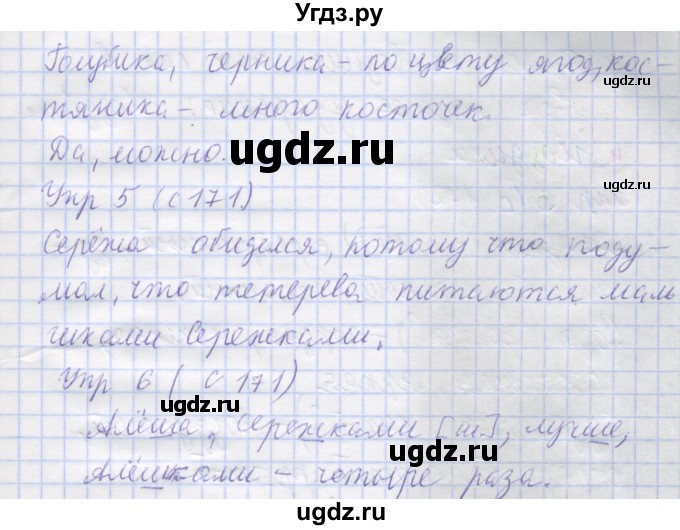 Угдз.ру
Голубика, черника – по цвету ягод, кос-
тяника – много косточек.
Да, можно.
ugdz.ru
ugdz.ru
Упр 5 (с 171)
Серёжа обиделся, потому что поду-
мал, что тетерева питаются маль
чиками Сережками.
ugdz.ru
ugdz.ru
Упр 6 (с 171)
ugdz.ru
Алёша, сережками [ш], лучше,
Алёшками – четыре раза.
ugdz.ru
Угдз.ру